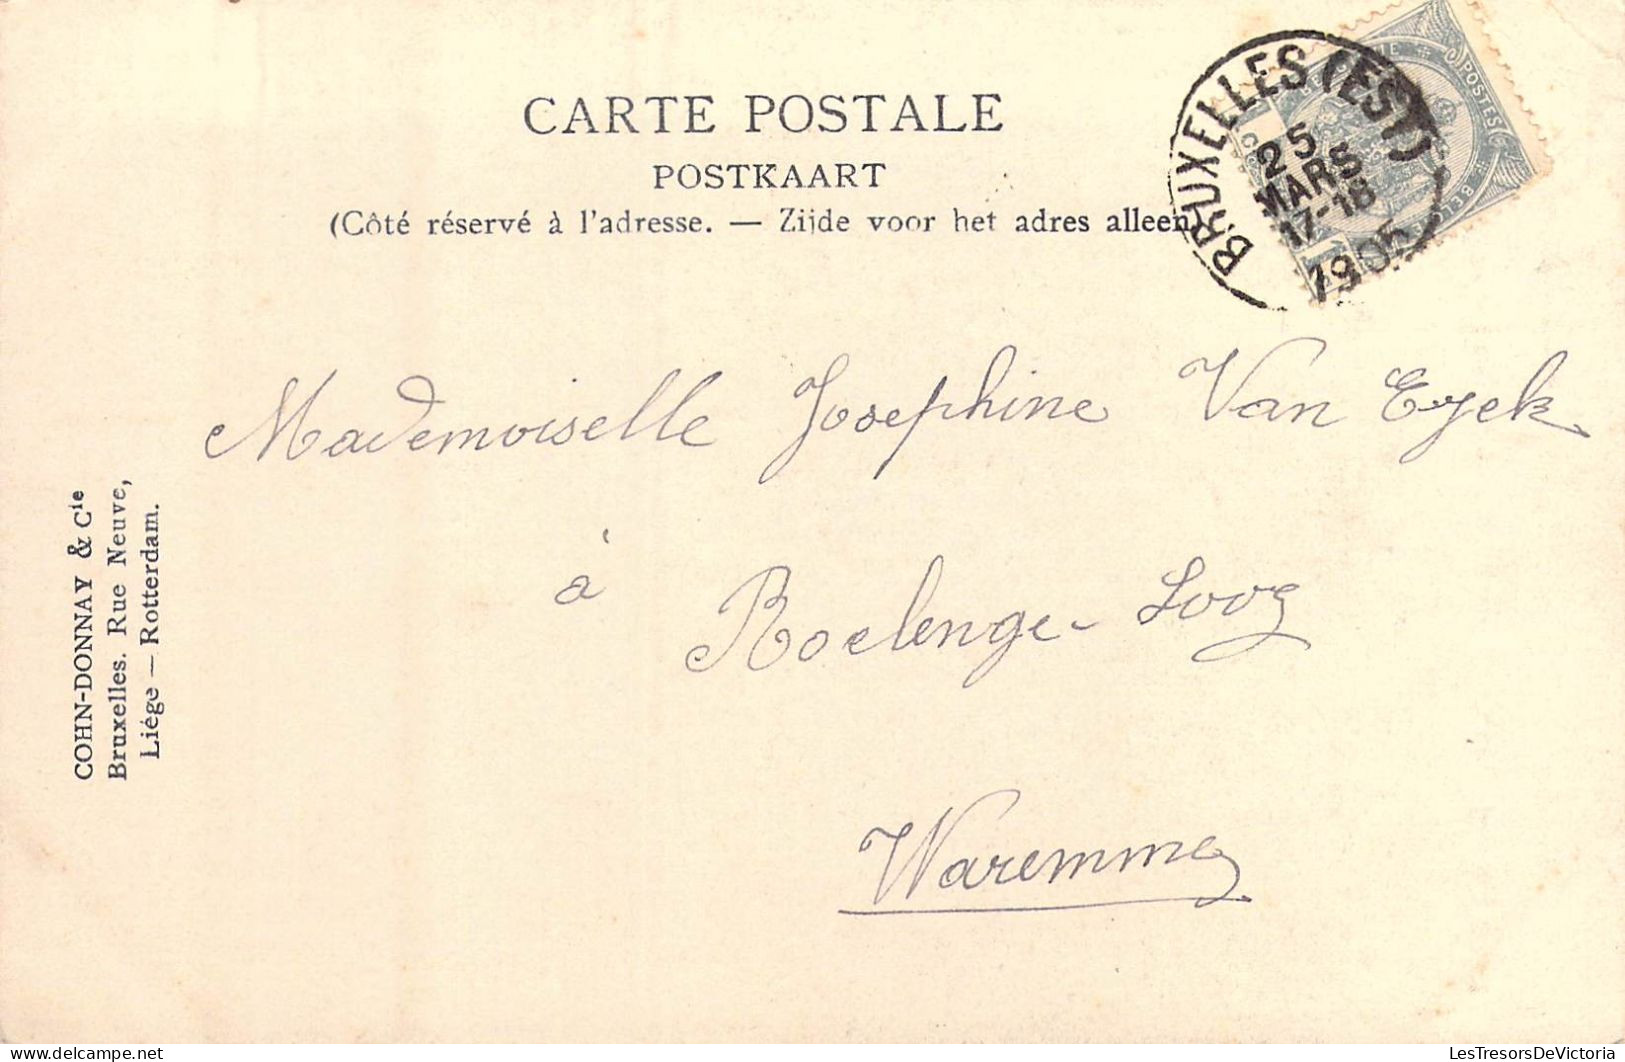 CARTE POSTALE
POSTKAART
(Côté réservé à l'adresse. — Zijde voor het adres alleen)
BRUXELLES (EST)
25
MARS
17-18
1905
POSTES
Mademoiselle Josephine Van Eyck
à Roelenge-Looz
Waremme
COHN-DONNAY & Cie
Bruxelles. Rue Neuve,
Liége — Rotterdam.
LesTresorsDeVictoria